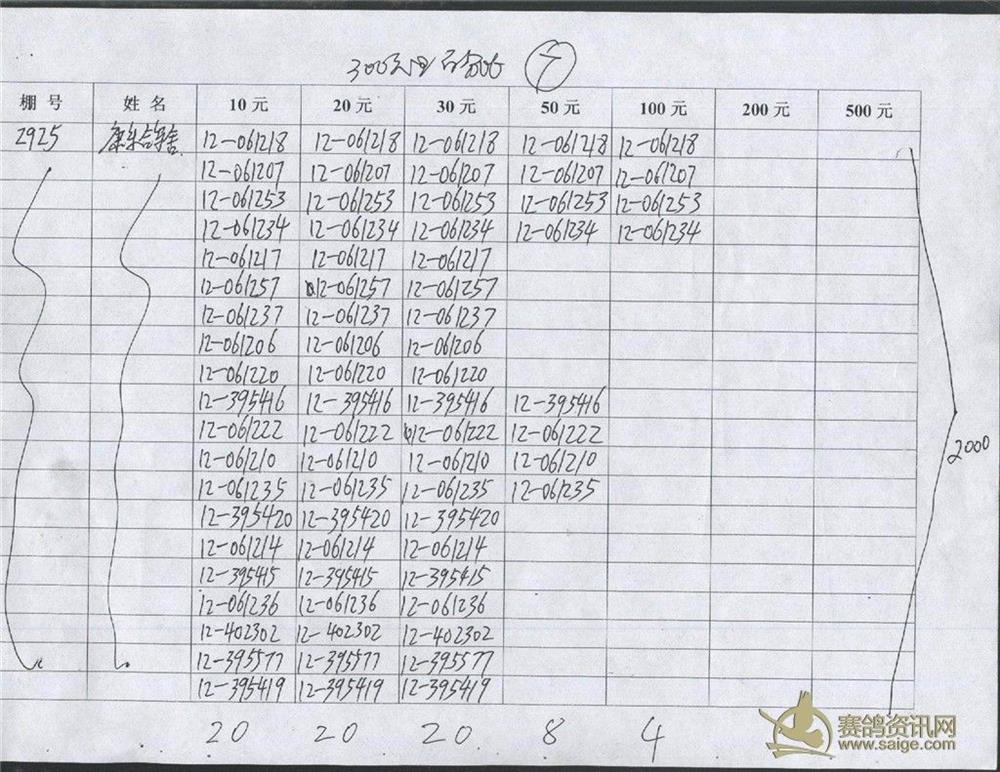 300公里 7
棚号 姓名 10元 20元 30元 50元 100元 200元 500元
2925 康乐鸽舍 12-061218 12-061218 12-061218 12-061218 12-061218
12-061207 12-061207 12-061207 12-061207 12-061207
12-061253 12-061253 12-061253 12-061253 12-061253
12-061234 12-061234 12-061234 12-061234 12-061234
12-061217 12-061217 12-061217
12-061257 12-061257 12-061257
12-061237 12-061237 12-061237
12-061206 12-061206 12-061206
12-061220 12-061220 12-061220
12-395416 12-395416 12-395416 12-395416
12-061222 12-061222 12-061222 12-061222
12-061210 12-061210 12-061210 12-061210
2000
12-061235 12-061235 12-061235 12-061235
12-395420 12-395420 12-395420
12-061214 12-061214 12-061214
12-395415 12-395415 12-395415
12-061236 12-061236 12-061236
12-402302 12-402302 12-402302
12-395577 12-395577 12-395577
12-395419 12-395419 12-395419
20 20 20 8 4
赛鸽资讯网
www.saige.com